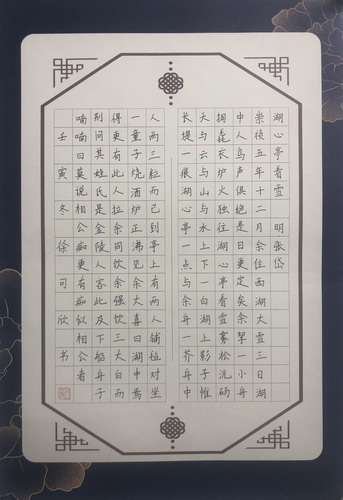 湖心亭看雪 明 张岱
崇祯五年十二月余住西湖大雪三日湖
中人鸟声俱绝是日更定矣余挐一小舟
拥毳衣炉火独往湖心亭看雪雾凇沆砀
天与云与山与水上下一白湖上影子惟
长堤一痕湖心亭一点与余舟一芥舟中
人两三粒而已到亭上有两人铺毡对坐
一童子烧酒炉正沸见余大喜曰湖中焉
得更有此人拉余同饮余强饮三大白而
别问其姓氏是金陵人客此及下船舟子
喃喃曰莫说相公痴更有痴似相公者
壬寅冬徐可欣书